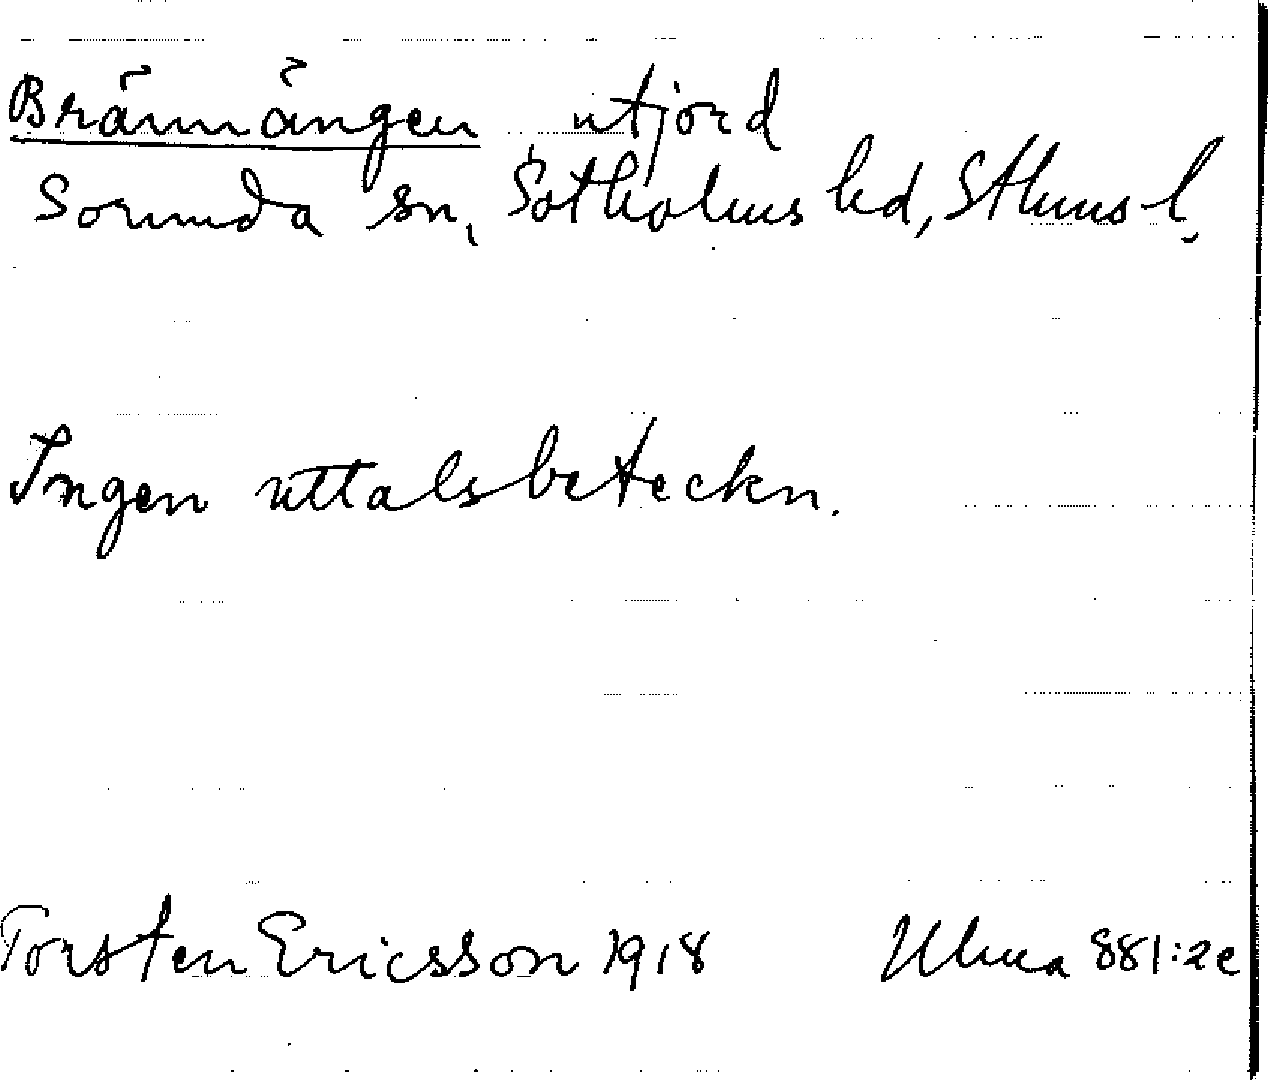 Brännängen utjord
Sorunda sn, Sotholms hd, Sthms l,
Ingen uttalsbeteckn.
Torsten Ericsson 1918 Ulma 881:2c